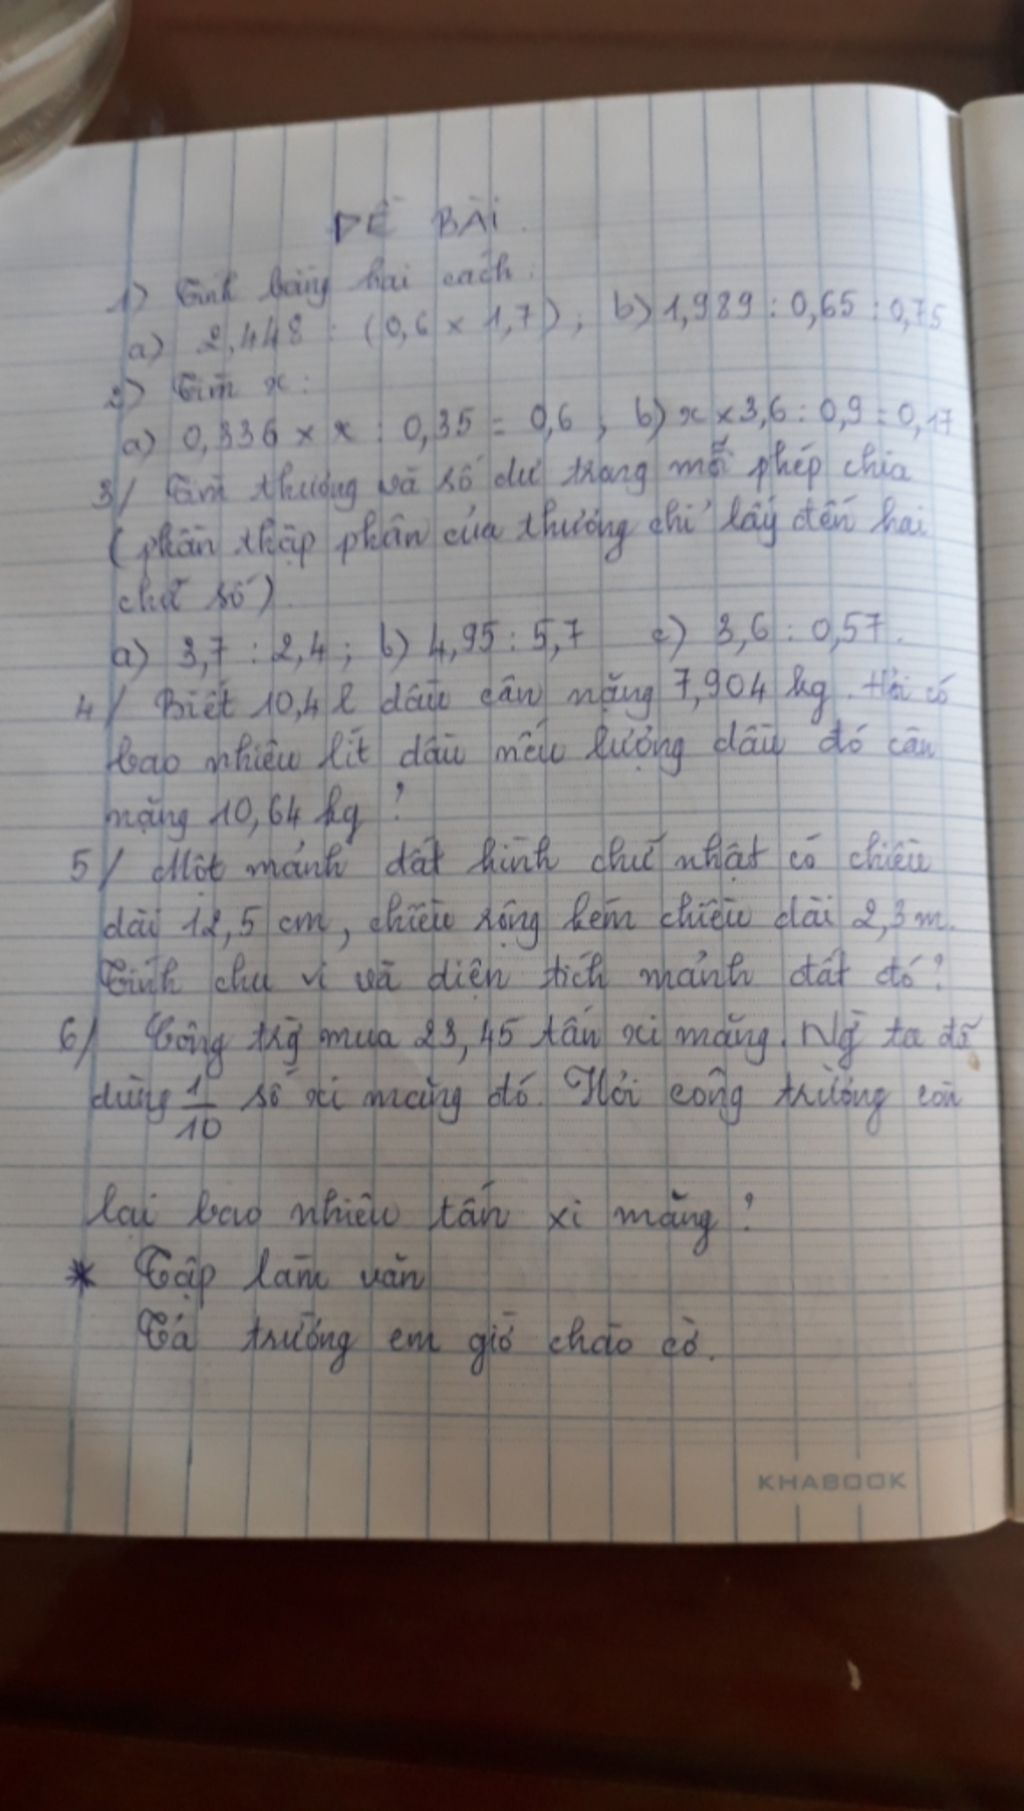 ĐỀ BÀI.
1) Tính bằng hai cách:
a) 2,448 : (0,6 x 1,7); b) 1,989 : 0,65 : 0,75
2) Tìm x:
a) 0,336 x x : 0,35 = 0,6; b) x x 3,6 : 0,9 = 0,17
3/ Tìm thương và số dư trong mỗi phép chia
(phần thập phân của thương chỉ lấy đến hai
chữ số).
a) 3,7 : 2,4; b) 4,95 : 5,7 c) 3,6 : 0,57.
4/ Biết 10,4 l dầu cân nặng 7,904 kg. Hỏi có
bao nhiêu lít dầu nếu lượng dầu đó cân
nặng 10,64 kg ?
5/ Một mảnh đất hình chữ nhật có chiều
dài 12,5 cm, chiều rộng kém chiều dài 2,3 m.
Tính chu vi và diện tích mảnh đất đó?
6/ Công trg̀ mua 23,45 tấn xi măng. Ng̀ ta đã
dùng 1/10 số xi măng đó. Hỏi công trường còn
lại bao nhiêu tấn xi măng ?
* Tập làm văn
Tả trường em giờ chào cờ.
KHABOOK